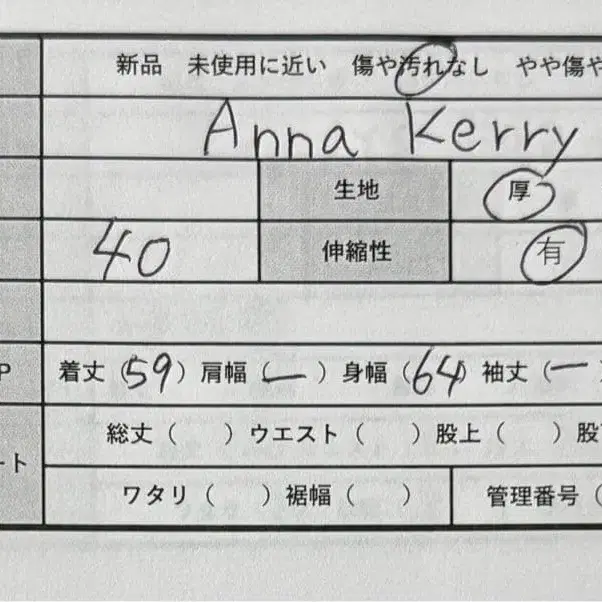 新品 未使用に近い 傷や汚れなし やや傷や
Anna Kerry
生地 厚
40 伸縮性 有
P 着丈(59) 肩幅(ー) 身幅(64) 袖丈(ー
総丈( )ウエスト( )股上( )股
ート
ワタリ( )裾幅( ) 管理番号(